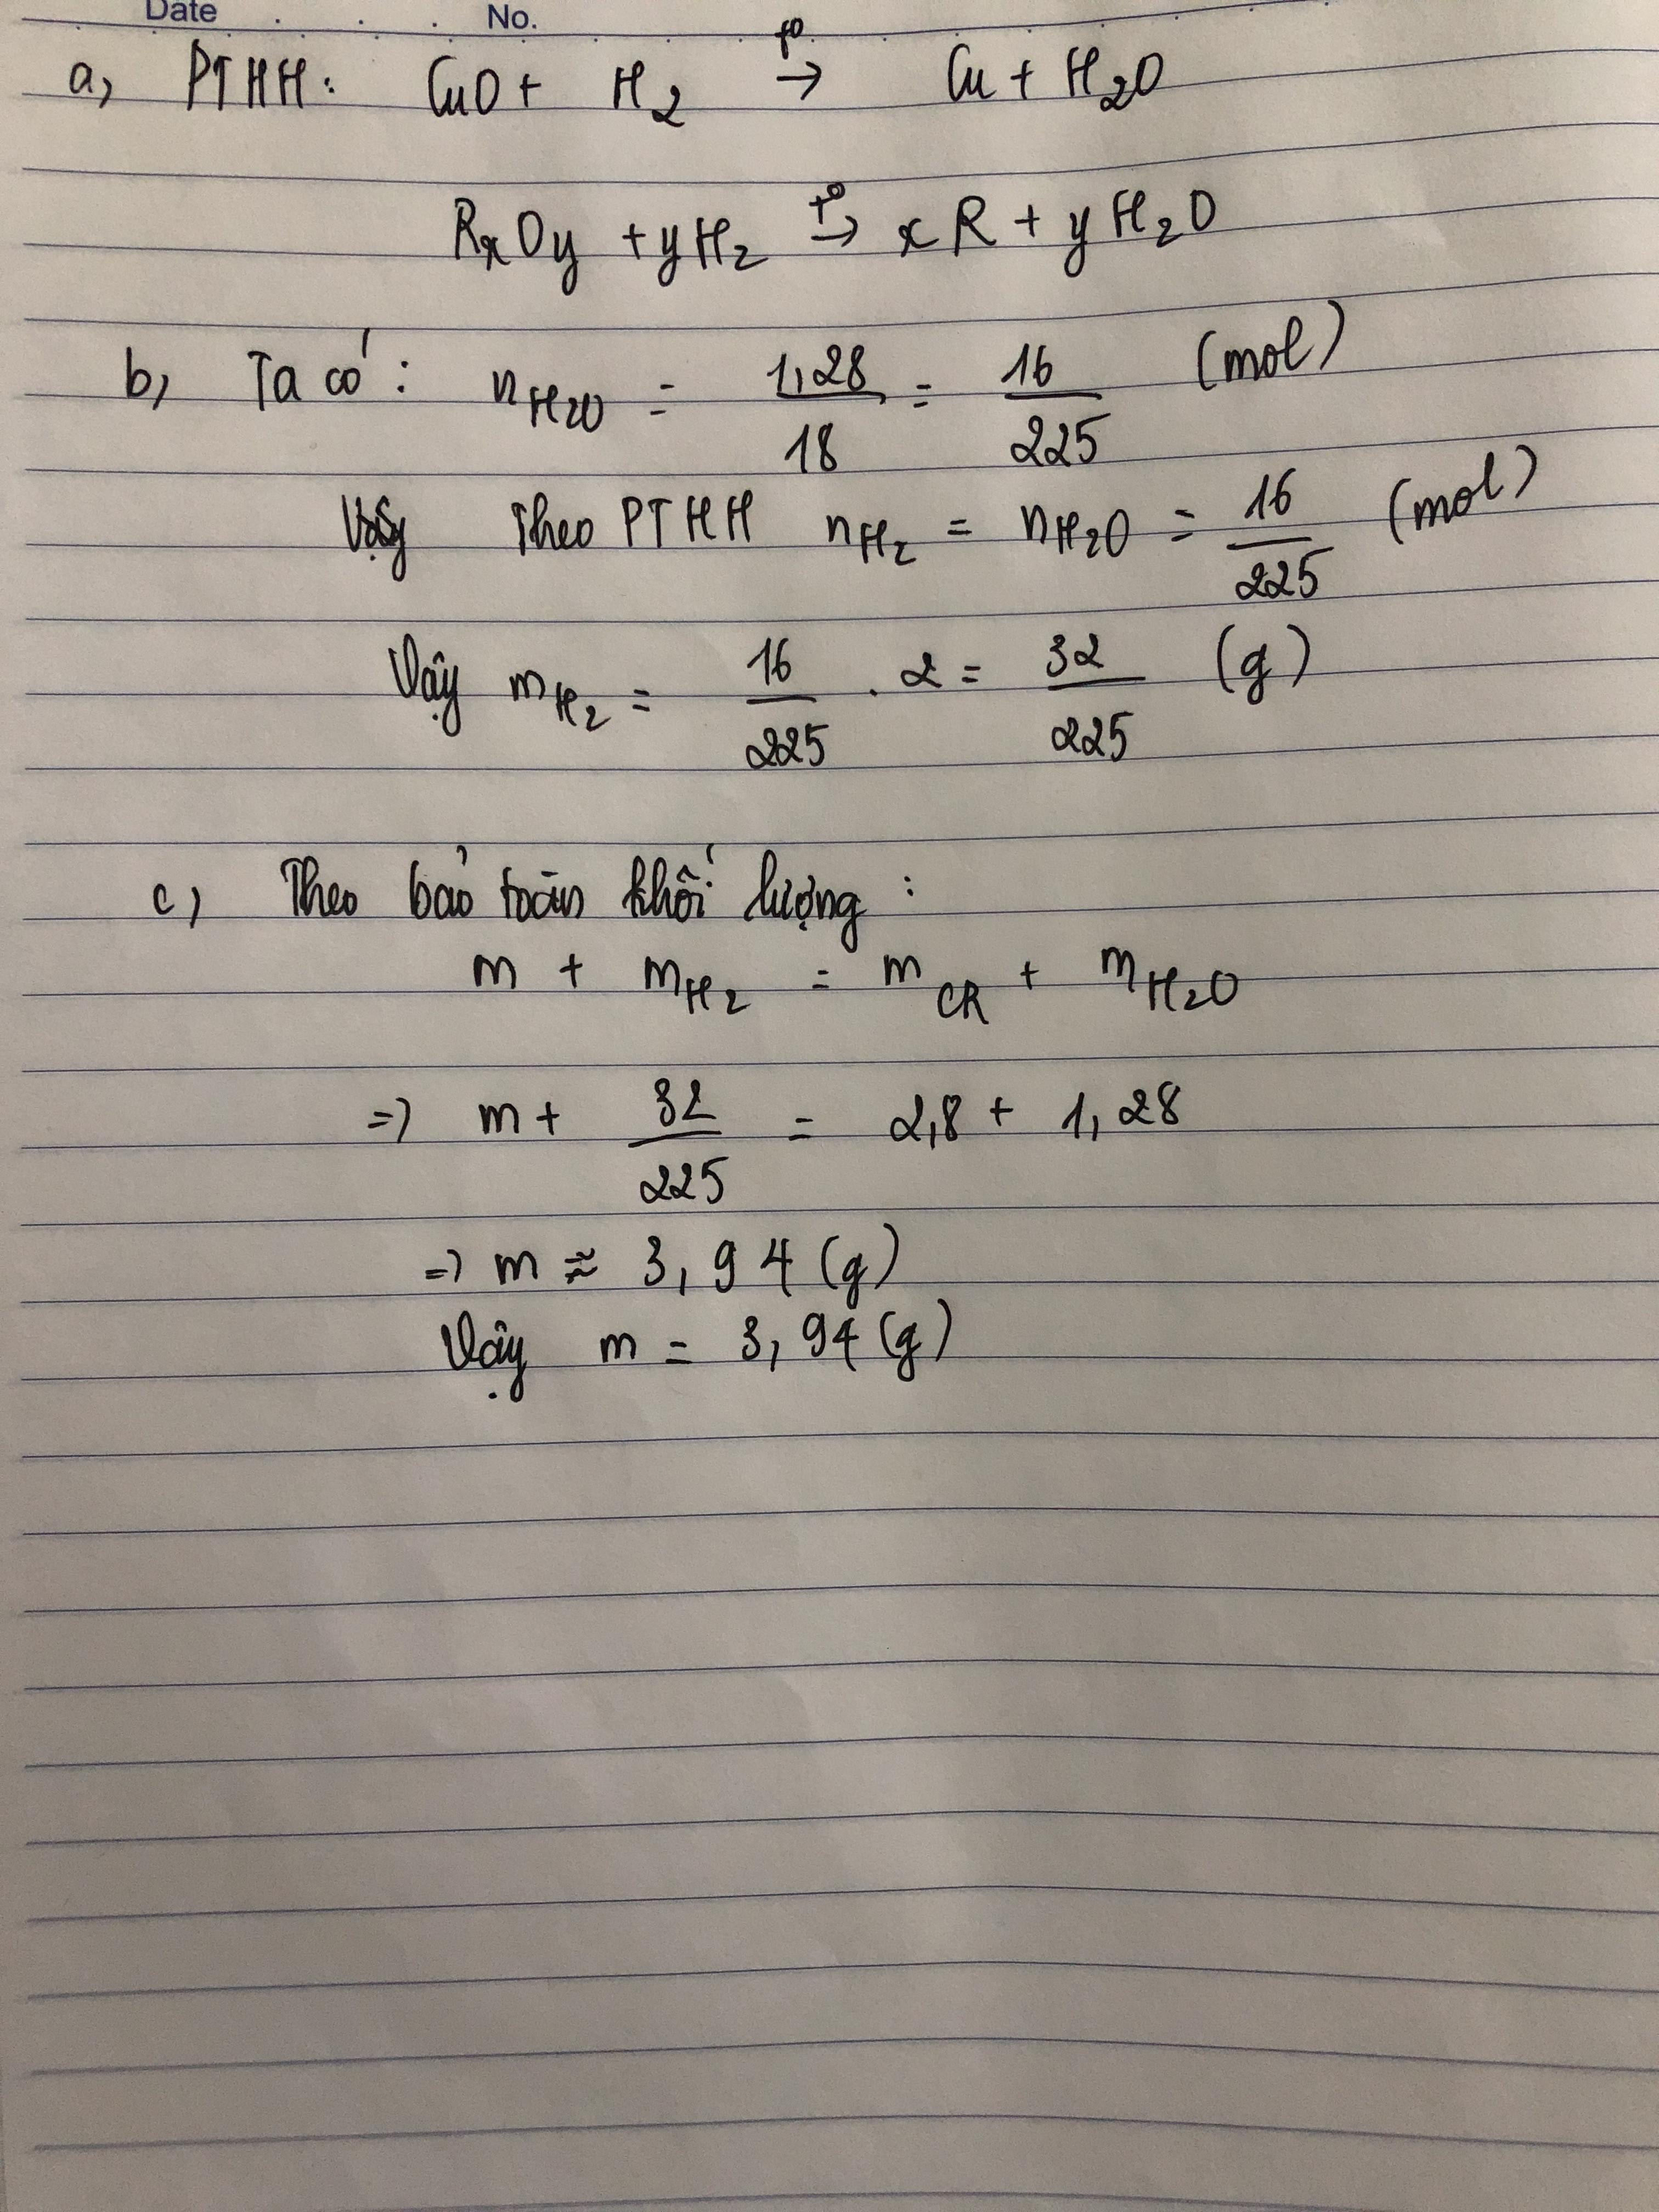 Date No.
a, PTHH: CuO + H₂ t⁰→ Cu + H₂O
RxOy + yH₂ t⁰→ xR + yH₂O
b, Ta có: nH₂O = 1,28/18 = 16/225 (mol)
Vậy Theo PTHH nH₂ = nH₂O = 16/225 (mol)
Vậy mH₂ = 16/225 . 2 = 32/225 (g)
c, Theo bảo toàn khối lượng:
m + mH₂ = mCR + mH₂O
=> m + 32/225 = 2,8 + 1,28
=> m ≈ 3,94 (g)
Vậy m = 3,94 (g)